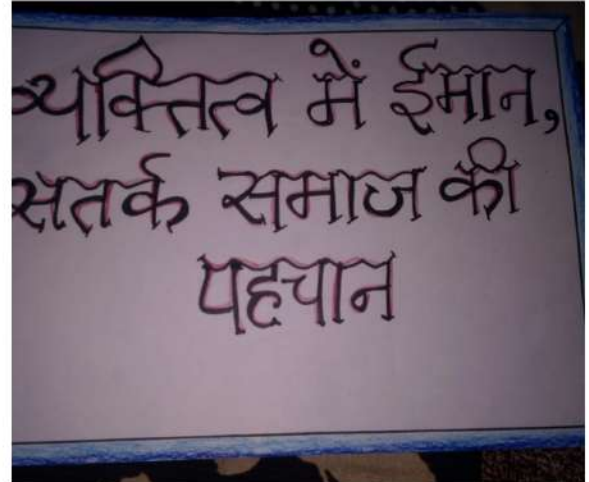 व्यक्तित्व में ईमान,
सतर्क समाज की
पहचान